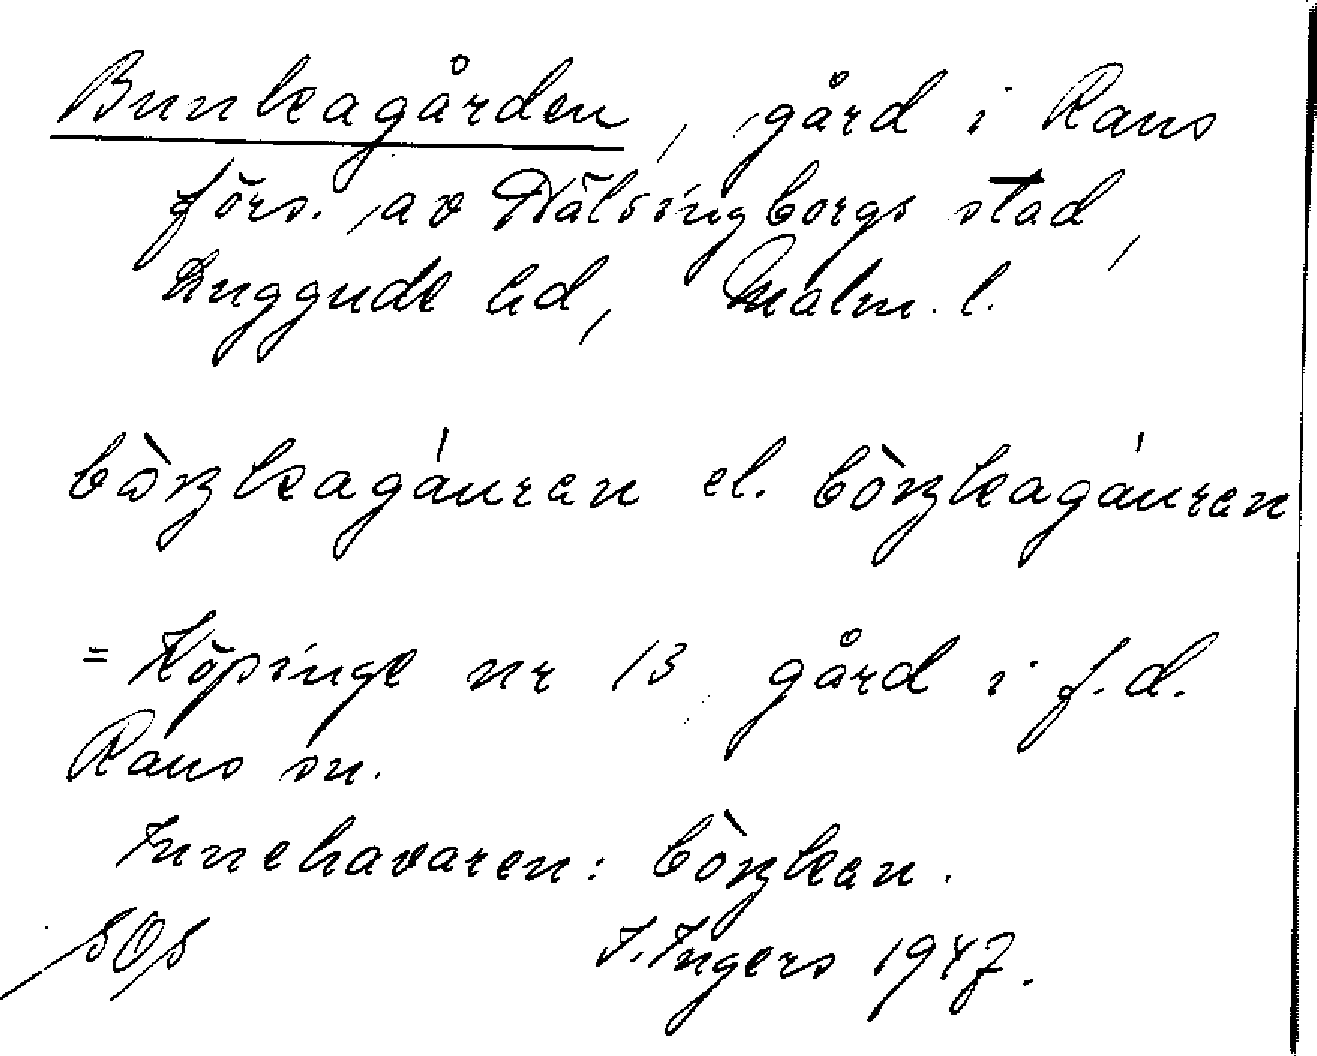 Bunkagården, gård i Raus
förs. av Hälsingborgs stad,
Luggude hd, Malm. l.
bòŋkagáuren el. bòŋkagáuren
= Köpinge nr 13 gård i f.d.
Raus sn.
Innehavaren: bòŋkan.
SOS I. Ingers 1947.